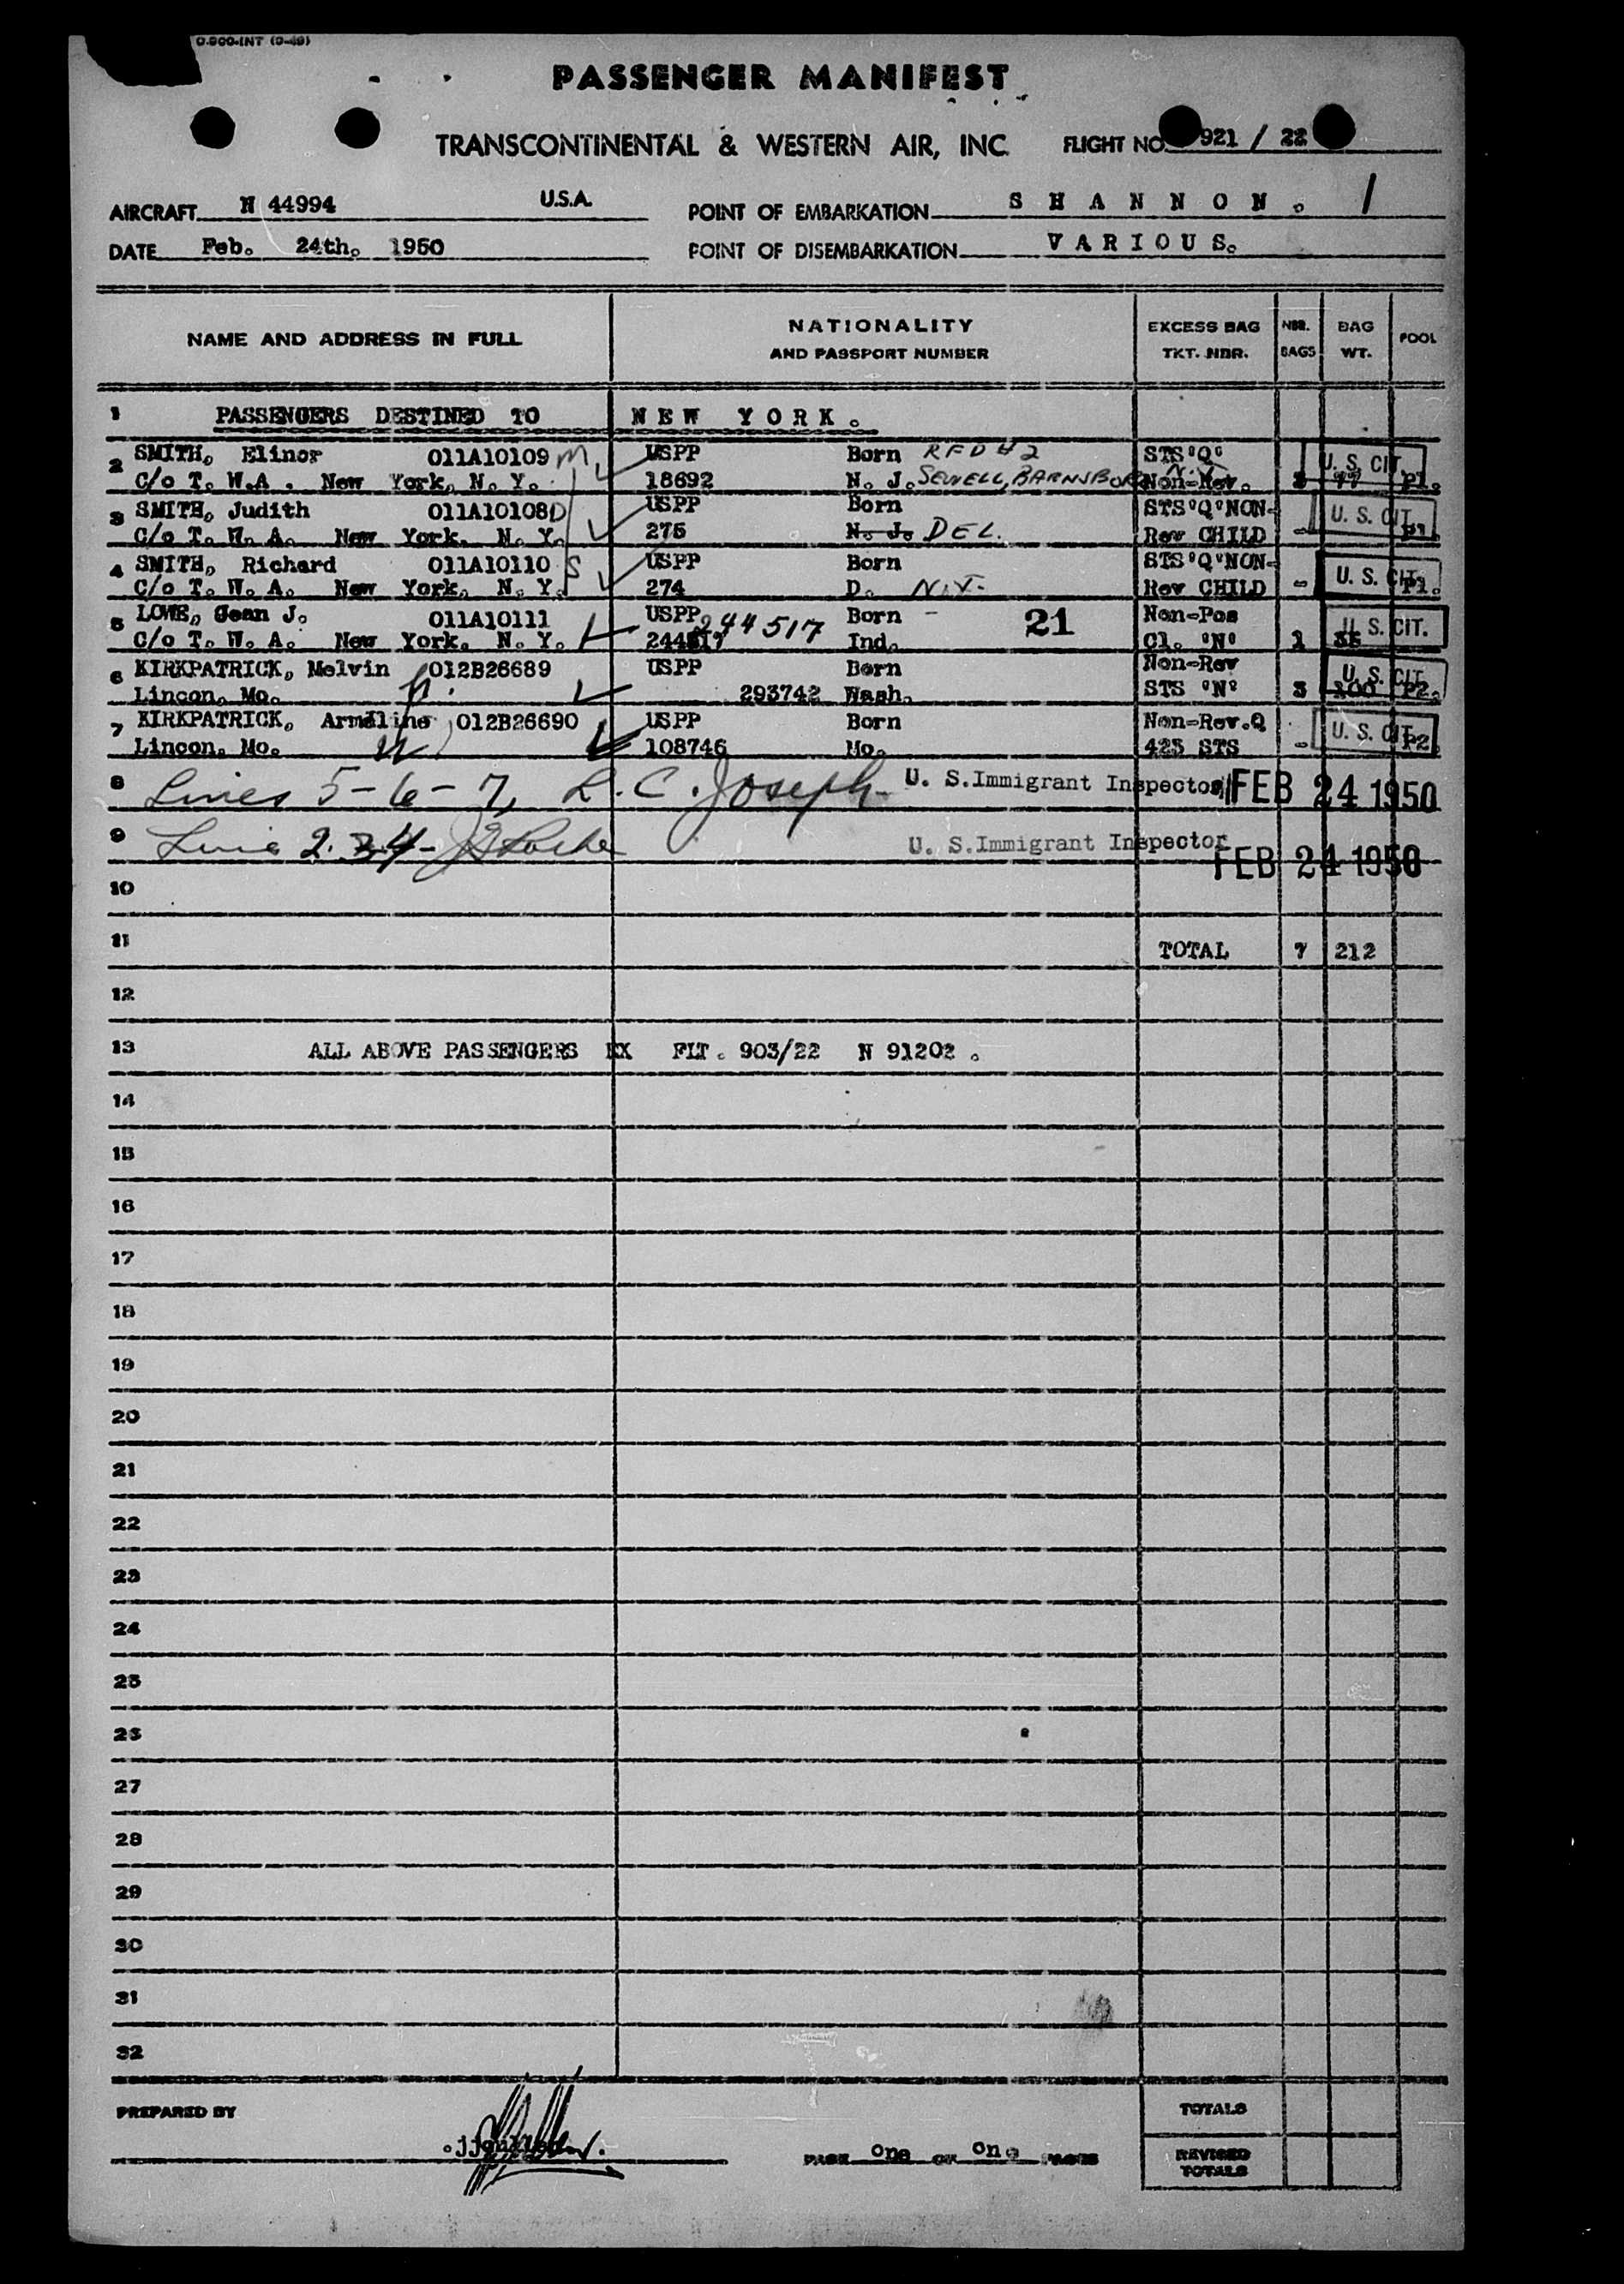 0-900-INT (9-49)
PASSENGER MANIFEST
TRANSCONTINENTAL & WESTERN AIR, INC FLIGHT NO. 921 / 22
AIRCRAFT N 44994 U.S.A. POINT OF EMBARKATION S H A N N O N . 1
DATE Feb. 24th. 1950 POINT OF DISEMBARKATION V A R I O U S.
NAME AND ADDRESS IN FULL NATIONALITY AND PASSPORT NUMBER EXCESS BAG TKT. NBR. NBR. BAGS BAG WT. POOL
1 PASSENGERS DESTINED TO N E W Y O R K .
2 SMITH, Elinor 011A10109 M USPP Born RFD #2 STS'Q' U. S. CIT.
C/o T. W.A . New York, N. Y. 18692 N. J. SEWELL, Non-Rev. P1.
3 SMITH, Judith 011A10108 D USPP Born STS'Q'NON- U. S. CIT.
C/o T. W. A. New York. N. Y. 275 N. J. DEL. Rev CHILD - P1.
4 SMITH, Richard 011A10110 S USPP Born STS'Q'NON- U. S. CIT.
C/o T. W. A. New York, N. Y. 274 D. N.J. Rev CHILD - P1.
5 LOWE, Jean J. 011A10111 USPP 244517 Born - 21 Non-Pos U. S. CIT.
C/o T. W. A. New York. N. Y. 244517 Ind. Cl. 'N' 1 35
6 KIRKPATRICK, Melvin 012B26689 USPP Born Non-Rev U. S. CIT.
Lincon. Mo. 293742 Wash. STS 'N' 3 100 P2.
7 KIRKPATRICK, Armeline 012B26690 USPP Born Non-Rev.Q U. S. CIT.
Lincon. Mo. 108746 Mo. 423 STS - P2.
8 Lines 5-6-7, L. C. Joseph U. S.Immigrant Inspector FEB 24 1950
9 Line 2. 3 4- U. S.Immigrant Inspector FEB 24 1950
10
11 TOTAL 7 212
12
13 ALL ABOVE PASSENGERS EX FLT. 903/22 N 91202 .
14
15
16
17
18
19
20
21
22
23
24
25
26
27
28
29
30
31
32
PREPARED BY TOTALS
PAGE One OF One PAGES REVISED TOTALS